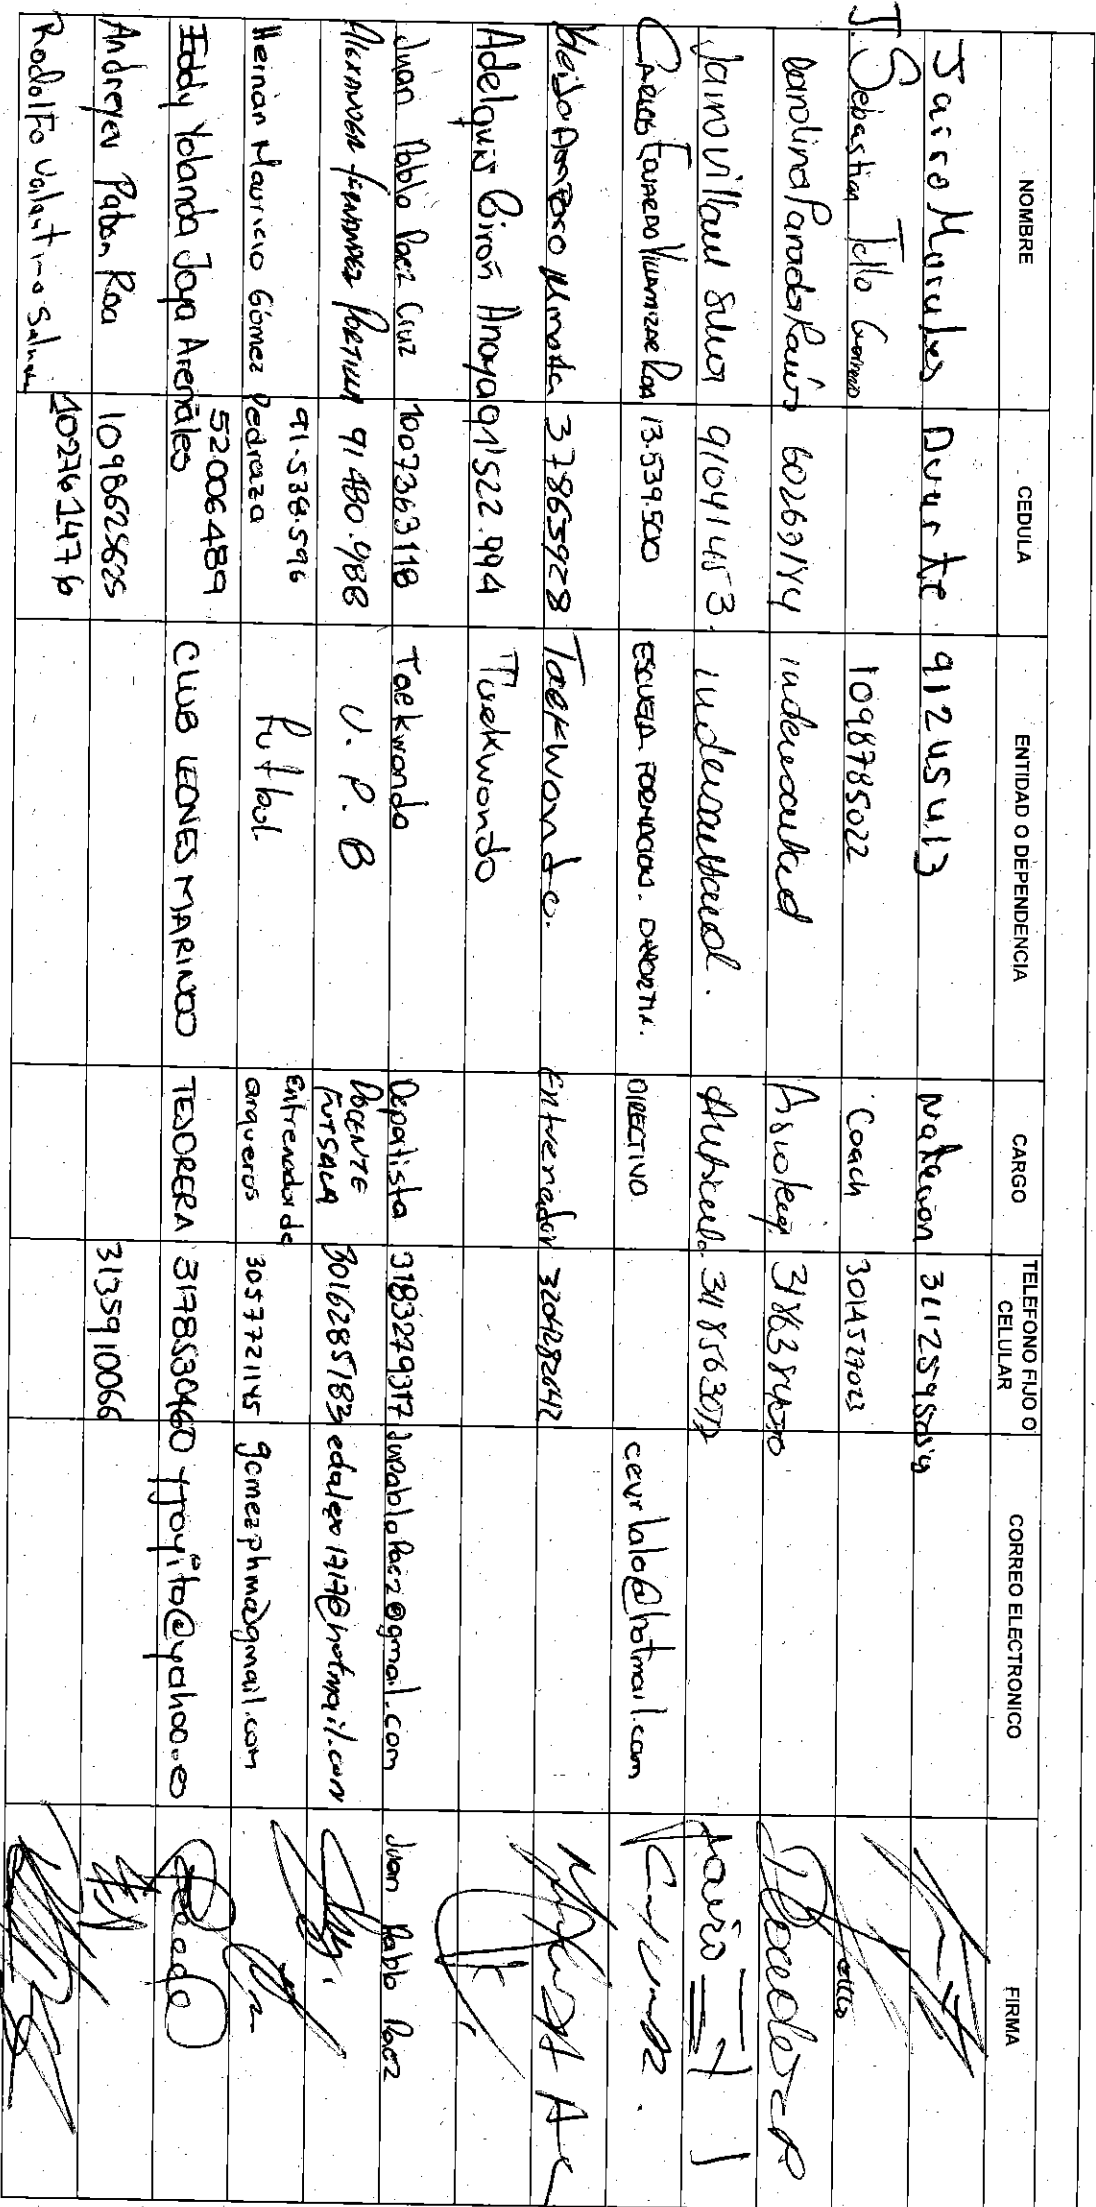 NOMBRE CEDULA ENTIDAD O DEPENDENCIA CARGO TELEFONO FIJO O CELULAR CORREO ELECTRONICO FIRMA
Jairo Morales Duarte 91245413 Natacion
J. Sebastian Tello 1098785022 Coach 3014527023
Carolina Parada Ramirez 60263144 indersantand
Jairo Villamil Silva 91041453. indersantand.
Carlos Eduardo Villamizar Roa 13.539.500 ESCUELA FORMACION. DEPORTIV. DIRECTIVO cevrlalo@hotmail.com
37863928 Taekwondo. Entrenador 3204282642
Adelquis Giron Anaya 91'522.994 Taekwondo
Juan Pablo Paez Cruz 1007363118 Taekwondo Depatista 3183279317 JuPabloPaez@gmail.com Juan Pablo Paez
Alexander Fernandez Portilla 91480.988 U. P. B DOCENTE FUTSALA 3016285183 edalexo1717@hotmail.com
Hernan Mauricio Gómez Pedraza 91.538.596 Futbol. Entrenador de arqueros 3057721145 gomezphm@gmail.com
Eddy Yolanda Joya Arenales 52006489 CLUB LEONES MARINOO TESORERA 3178530460 yjoyita@yahoo.es
Andreyev Pabon Roa 1098625625 3135910066
Rodolfo Valentino 102761476